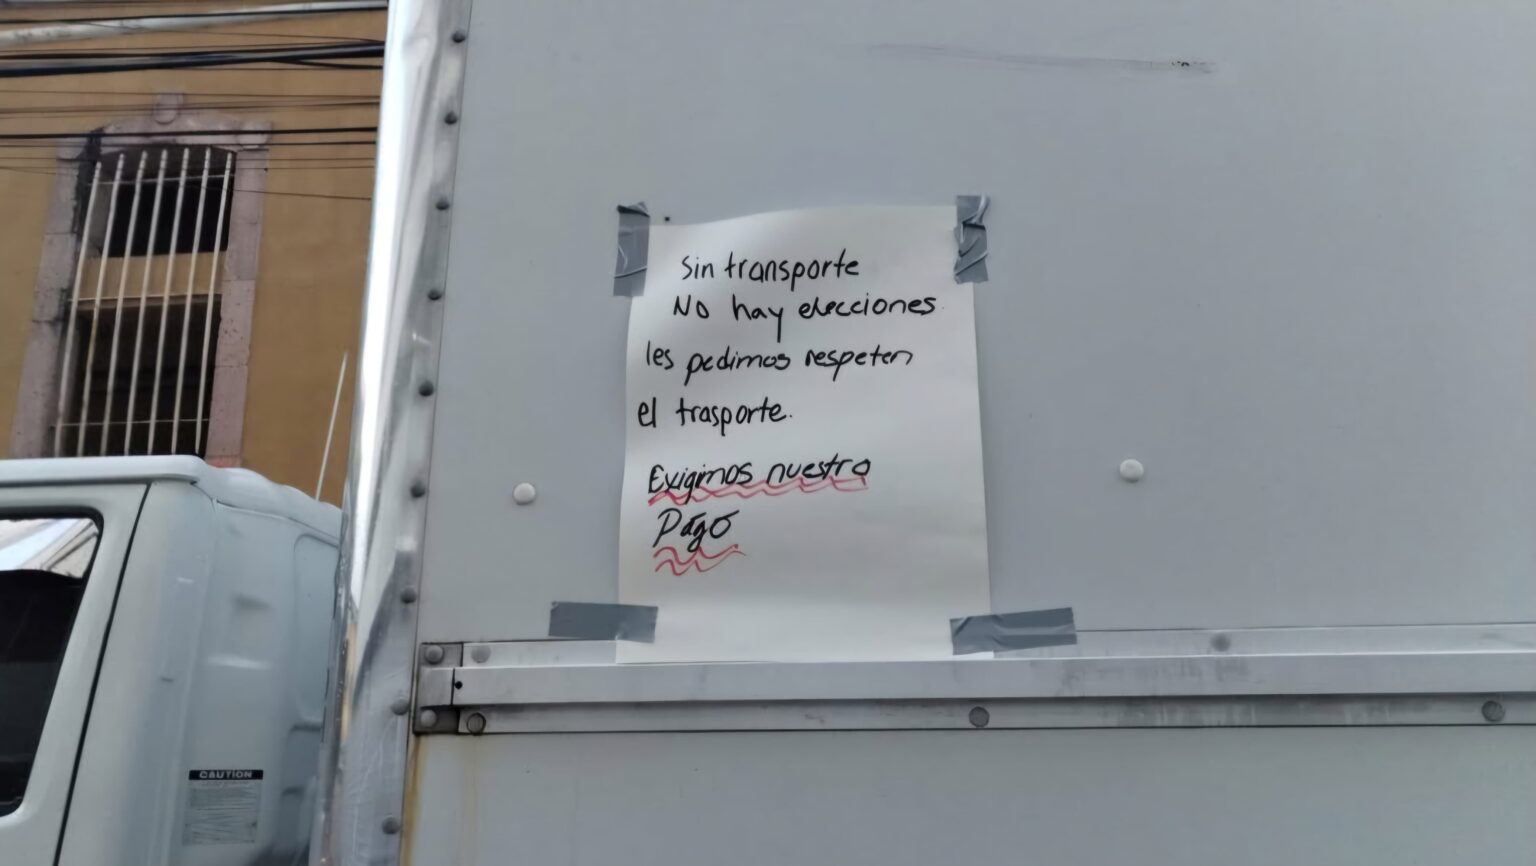 Sin transporte
No hay elecciones
les pedimos respeten
el trasporte.
Exigimos nuestro
Pago
CAUTION